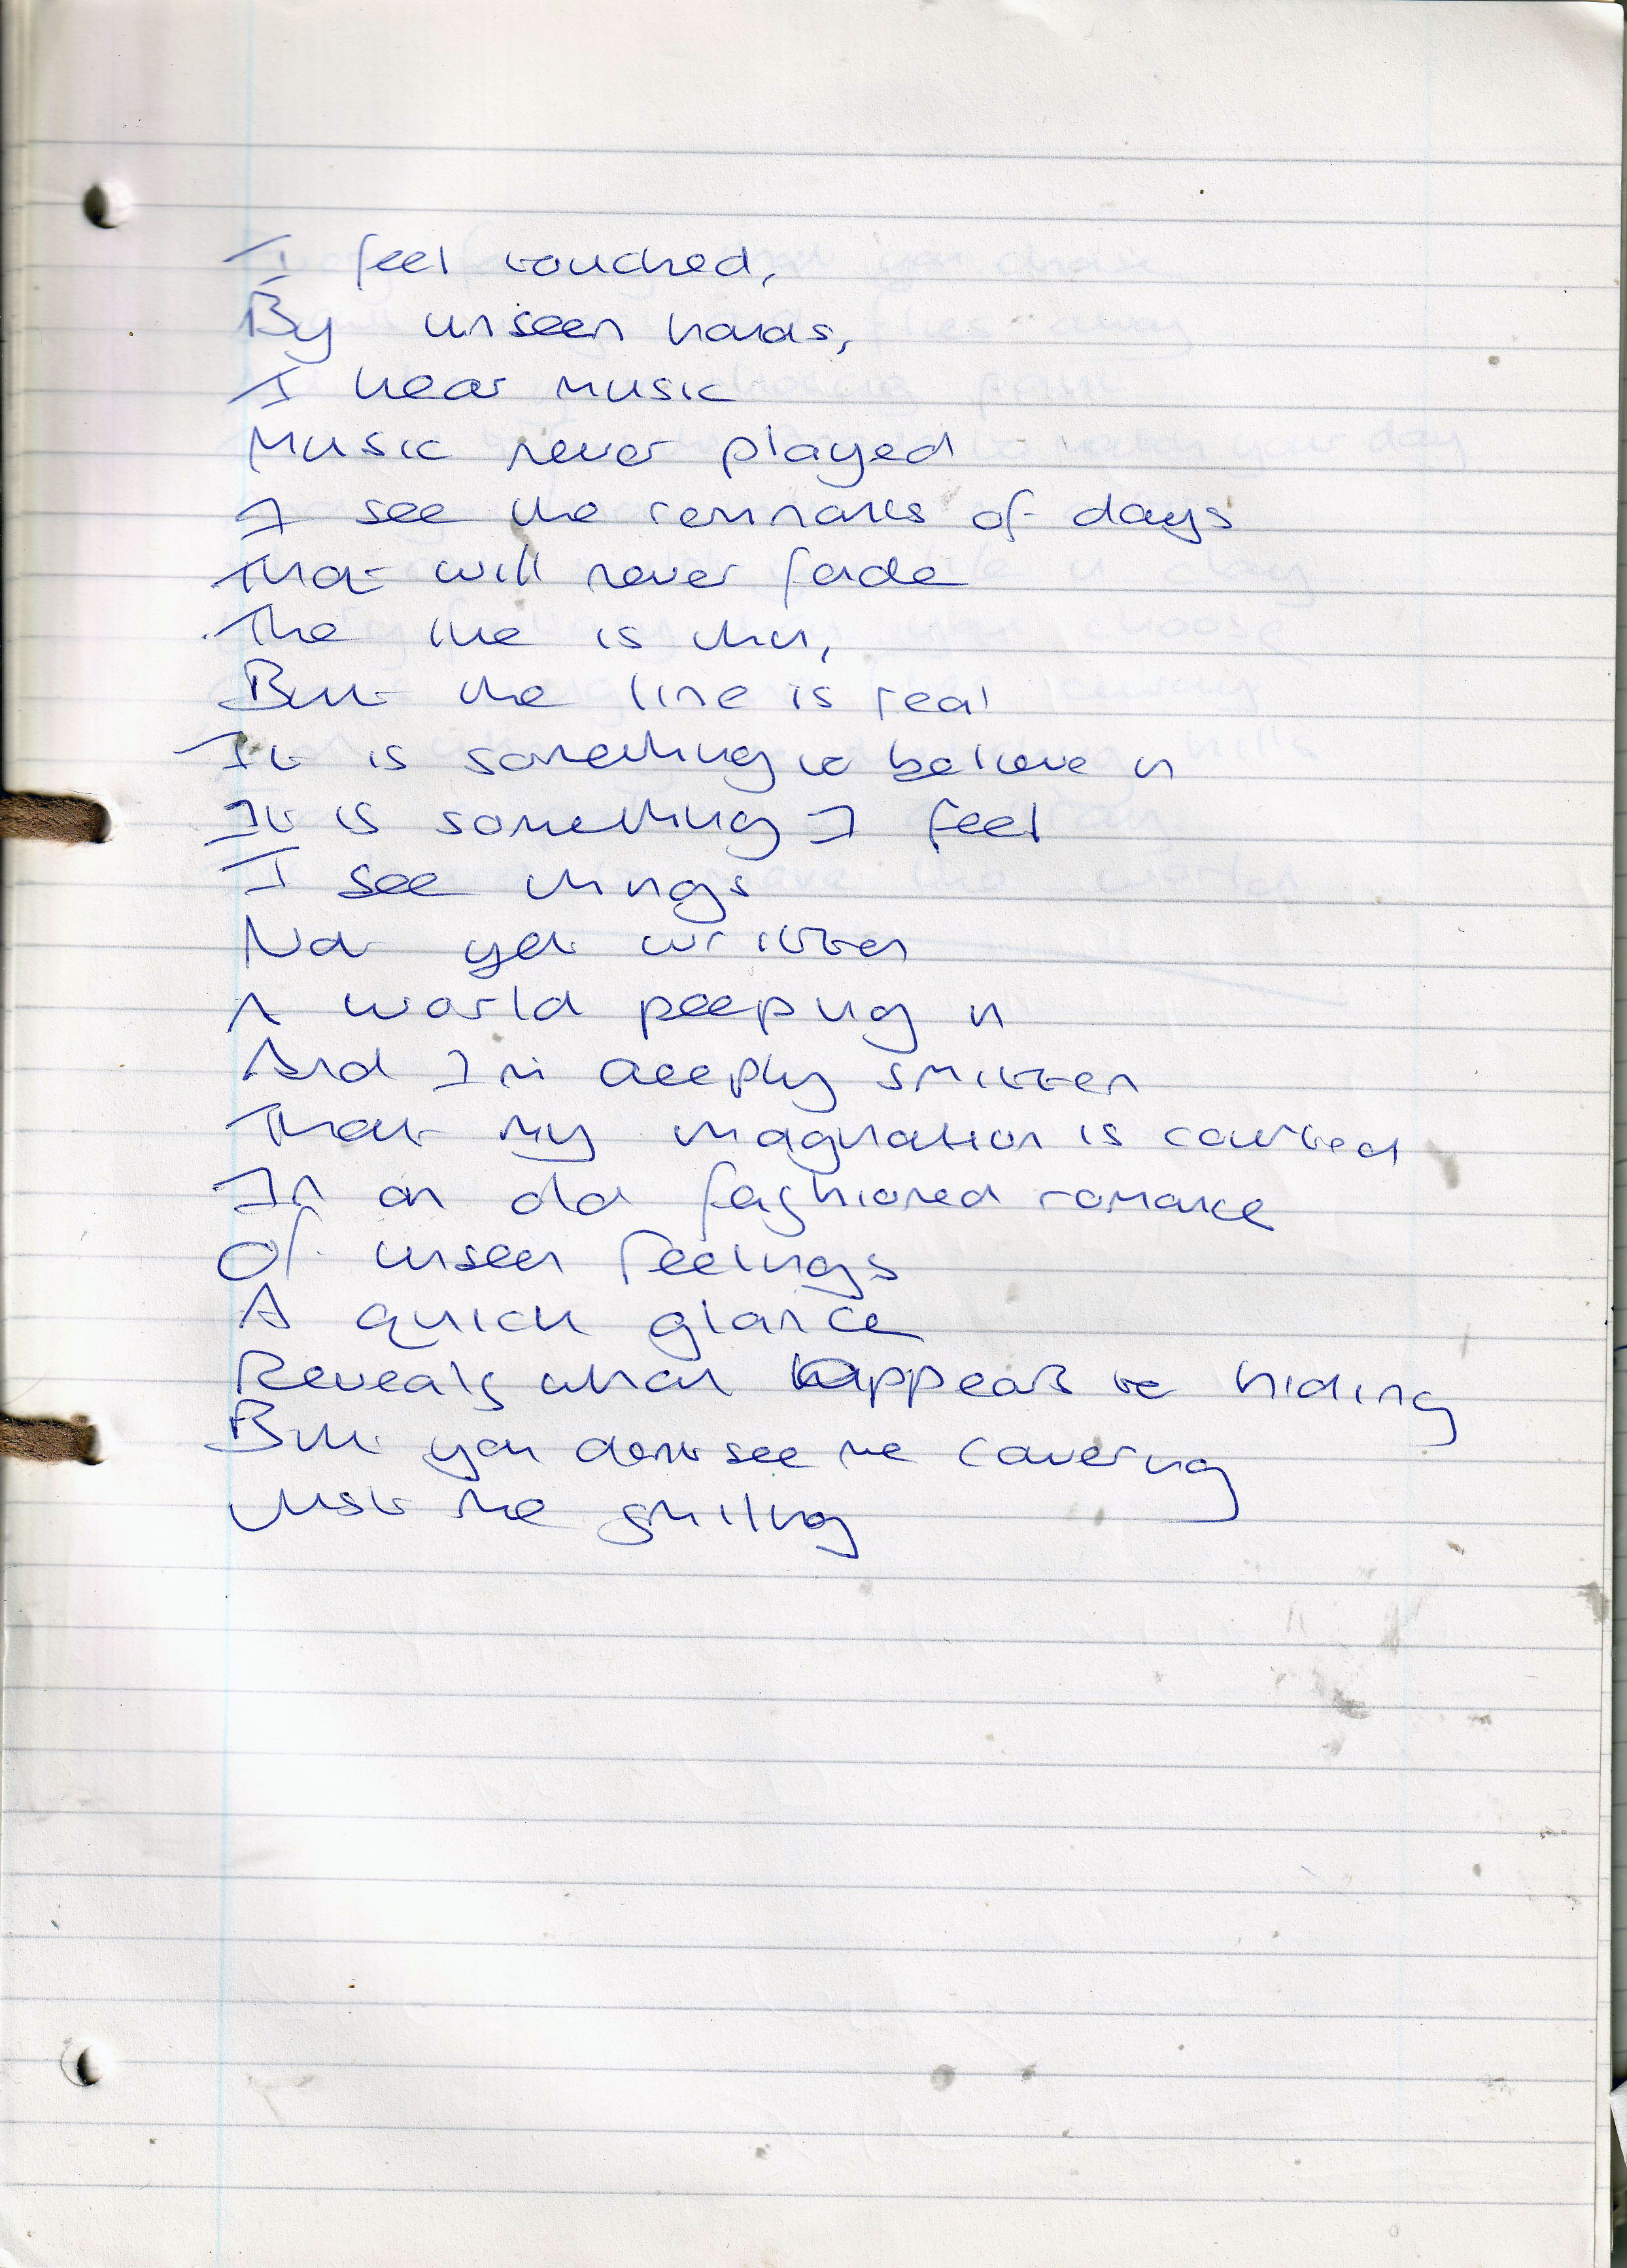 I feel touched,
By unseen hands,
I hear music
Music never played
I see the remnants of days
That will never fade
The line is thin,
But the line is real
It is something to believe in
It is something I feel
I see things
Not yet written
A world peeping in
And I'm deeply smitten
That my imagination is courted
In an old fashioned romance
Of unseen feelings
A quick glance
Reveals what appears to be hiding
But you dont see me cowering
Just me smiling